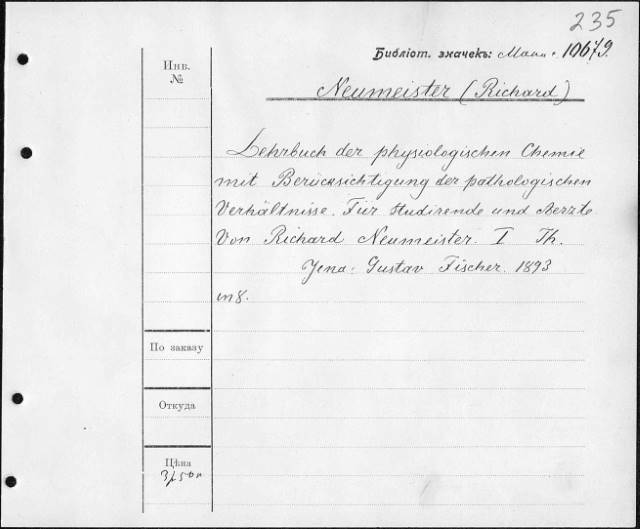 235
Библіот. значекъ: Маш. 10679.
Инв.
№
Neumeister (Richard)
Lehrbuch der physiologischen Chemie
mit Berücksichtigung der pathologischen
Verhältnisse. Für Studirende und Aerzte
Von Richard Neumeister. I Th.
Jena: Gustav Fischer. 1893
in 8.
По заказу
Откуда
Цѣна